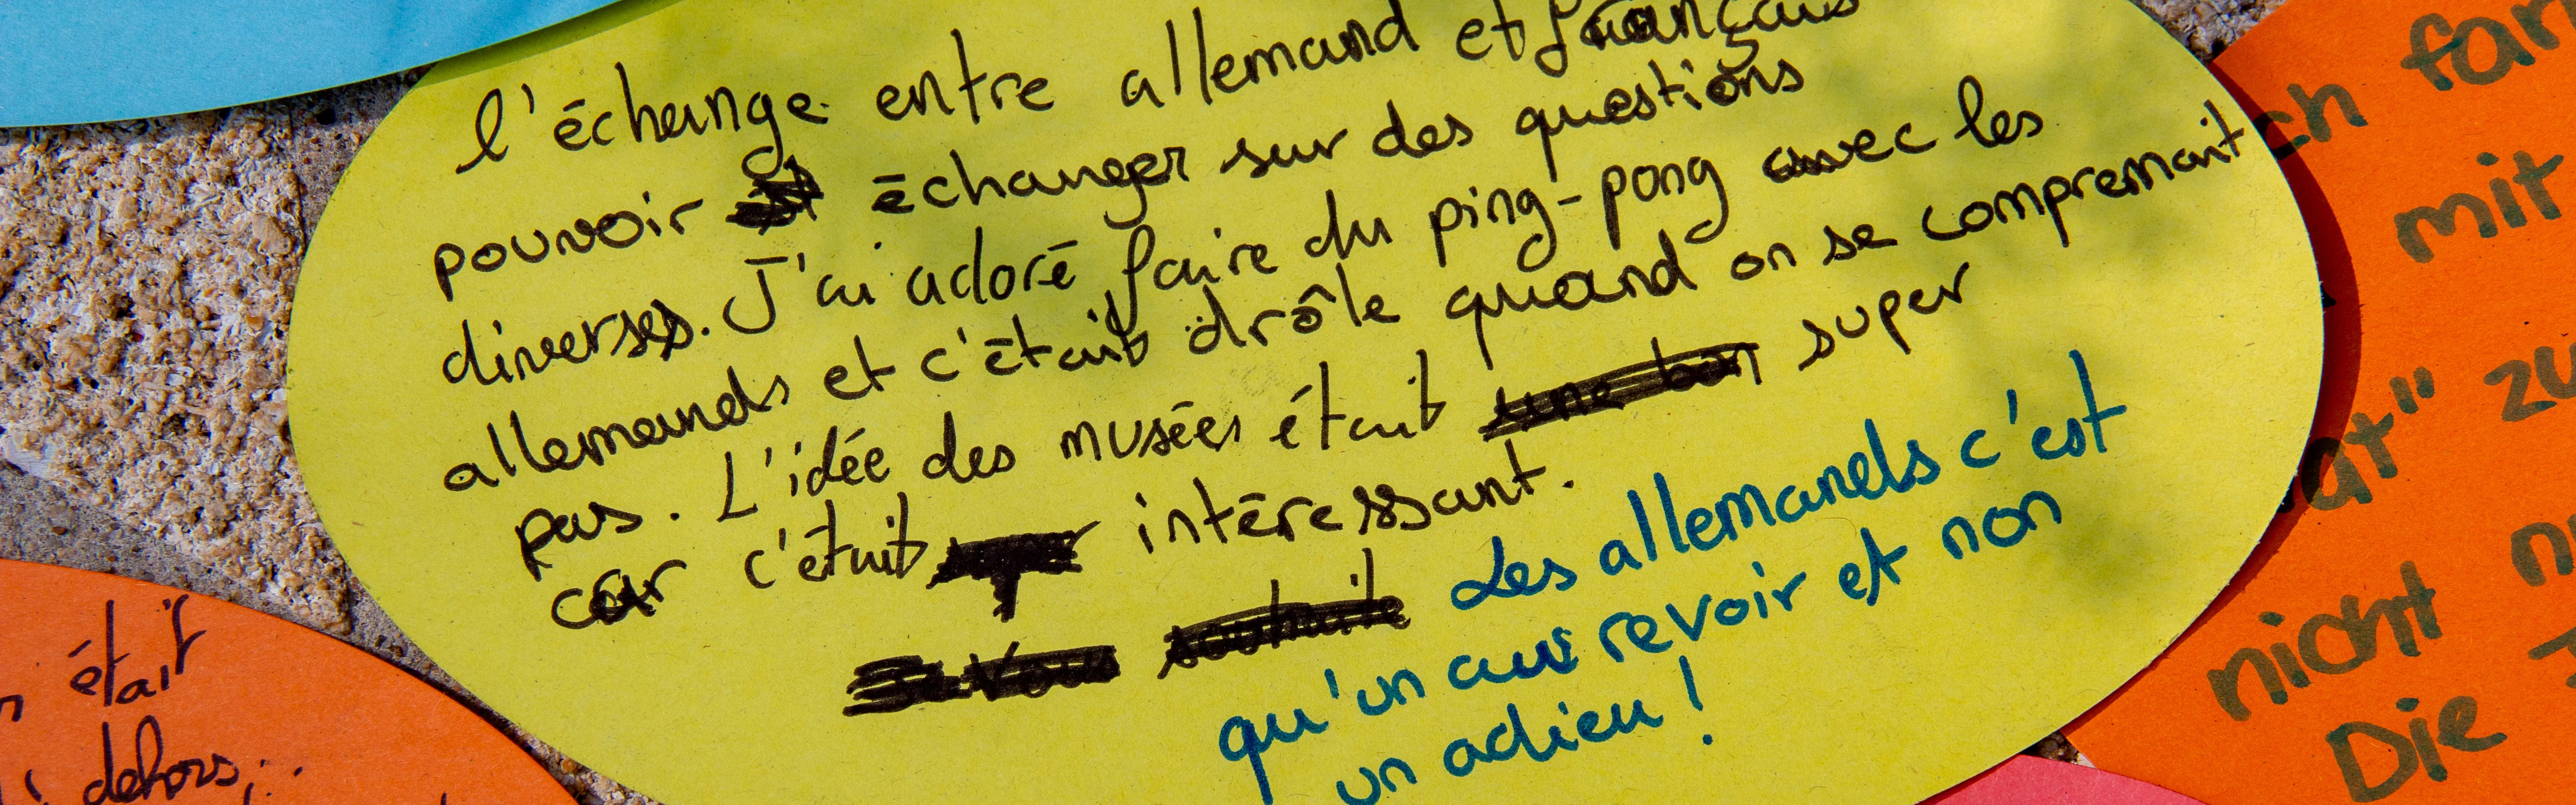 l'échange entre allemand et français
pouvoir échanger sur des questions
diverses. J'ai adoré faire du ping-pong avec les
allemands et c'était drôle quand on se comprenait
pas. L'idée des musées était une bon super
car c'était intéressant.
Les allemands c'est
qu'un au revoir et non
un adieu !
était
dehors,
ch fan
mit
at" zu
nicht n
Die